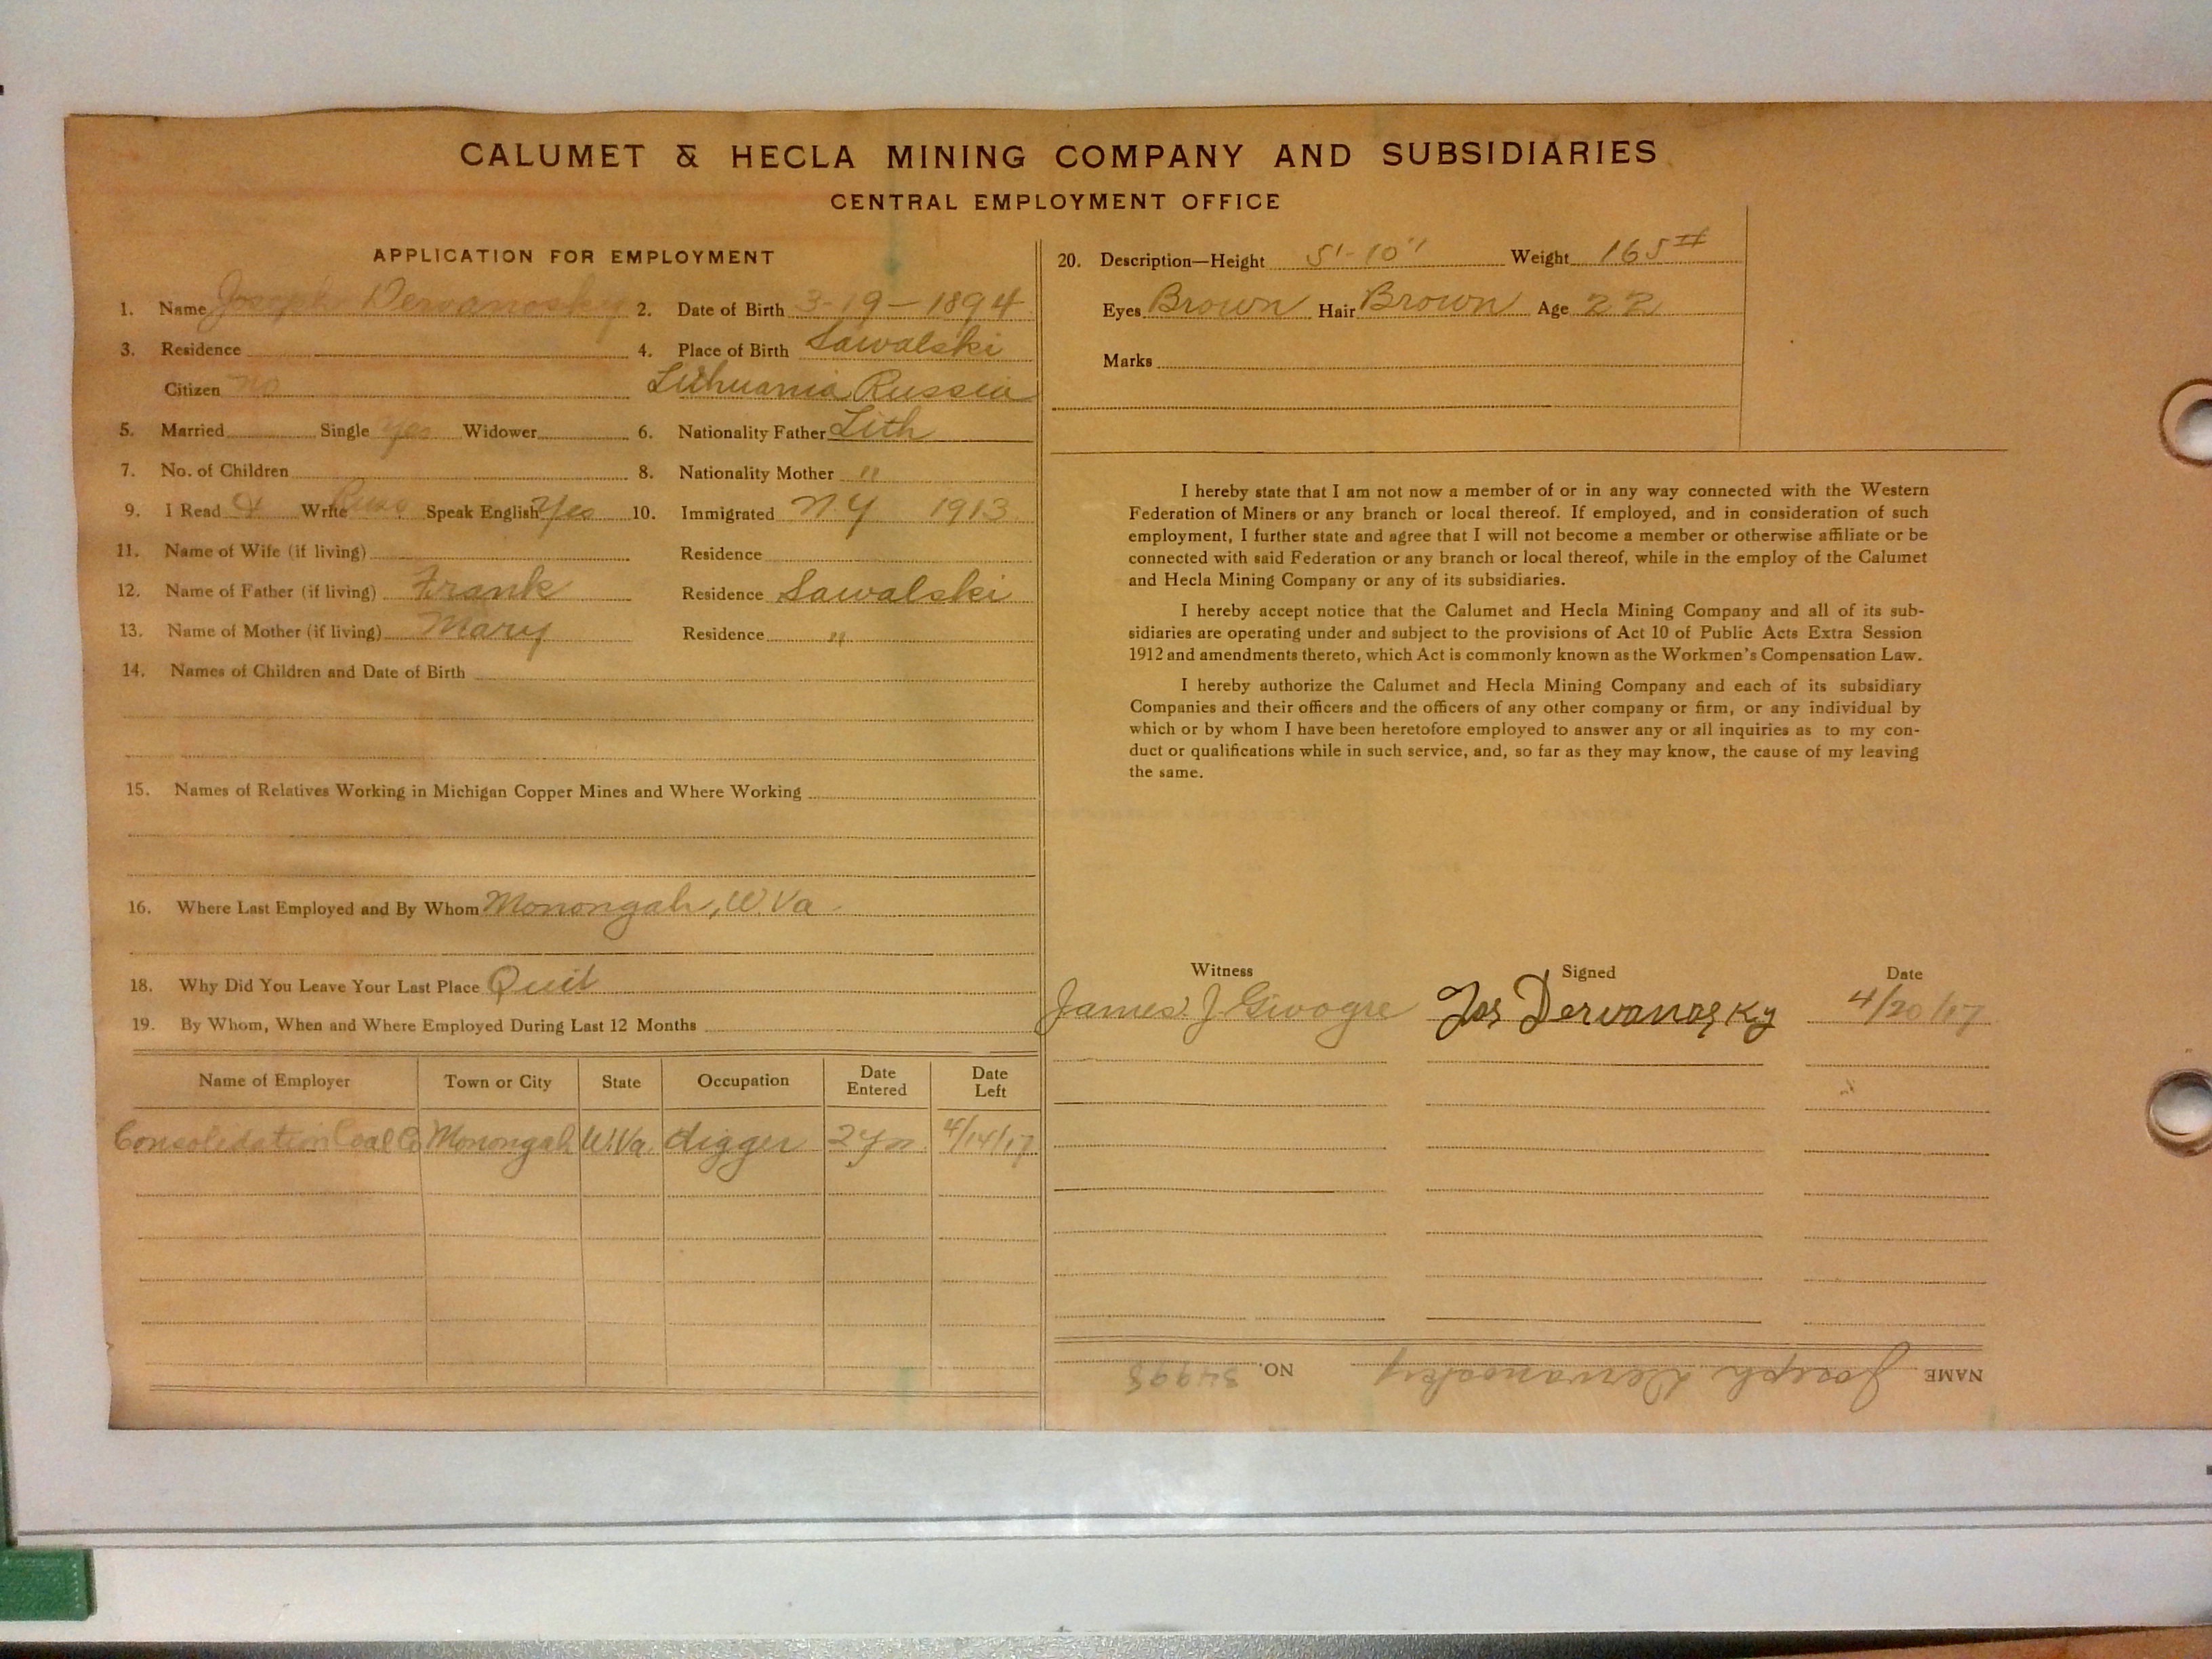 CALUMET & HECLA MINING COMPANY AND SUBSIDIARIES
CENTRAL EMPLOYMENT OFFICE
APPLICATION FOR EMPLOYMENT
1. Name Joseph Dervanosky 2. Date of Birth 3-19-1894
3. Residence 4. Place of Birth Sawalski
Citizen no Lithuania Russia
5. Married Single yes Widower 6. Nationality Father Lith
7. No. of Children 8. Nationality Mother "
9. I Read & Write Russ Speak English Yes 10. Immigrated N.Y 1913
11. Name of Wife (if living) Residence
12. Name of Father (if living) Frank Residence Sawalski
13. Name of Mother (if living) Mary Residence "
14. Names of Children and Date of Birth
15. Names of Relatives Working in Michigan Copper Mines and Where Working
16. Where Last Employed and By Whom Monongah, W.Va.
18. Why Did You Leave Your Last Place Quit
19. By Whom, When and Where Employed During Last 12 Months
Name of Employer Town or City State Occupation Date Entered Date Left
Consolidation Coal Co Monongah W.Va. digger 2 yrs. 4/14/17
20. Description—Height 5'-10" Weight 165#
Eyes Brown Hair Brown Age 22
Marks
I hereby state that I am not now a member of or in any way connected with the Western
Federation of Miners or any branch or local thereof. If employed, and in consideration of such
employment, I further state and agree that I will not become a member or otherwise affiliate or be
connected with said Federation or any branch or local thereof, while in the employ of the Calumet
and Hecla Mining Company or any of its subsidiaries.
I hereby accept notice that the Calumet and Hecla Mining Company and all of its sub-
sidiaries are operating under and subject to the provisions of Act 10 of Public Acts Extra Session
1912 and amendments thereto, which Act is commonly known as the Workmen's Compensation Law.
I hereby authorize the Calumet and Hecla Mining Company and each of its subsidiary
Companies and their officers and the officers of any other company or firm, or any individual by
which or by whom I have been heretofore employed to answer any or all inquiries as to my con-
duct or qualifications while in such service, and, so far as they may know, the cause of my leaving
the same.
Witness Signed Date
James J. Jos Dervanosky 4/20/17
NAME Joseph Dervanosky NO. 34998